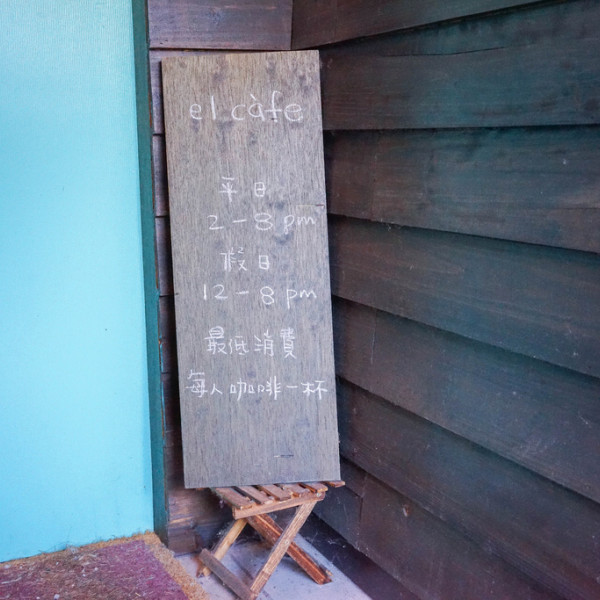 el càfe
平日
2-8 pm
假日
12-8 pm
最低消費
每人咖啡一杯